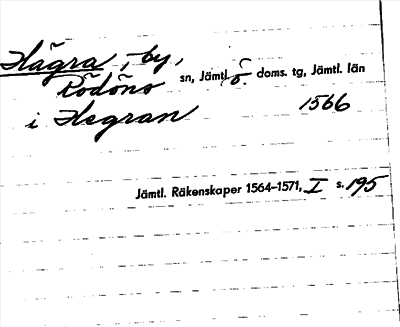 Hägra, by,
Rödöns sn, Jämtl. ö. doms. tg, Jämtl. län
i Hegran 1566
Jämtl. Räkenskaper 1564–1571, I s. 195